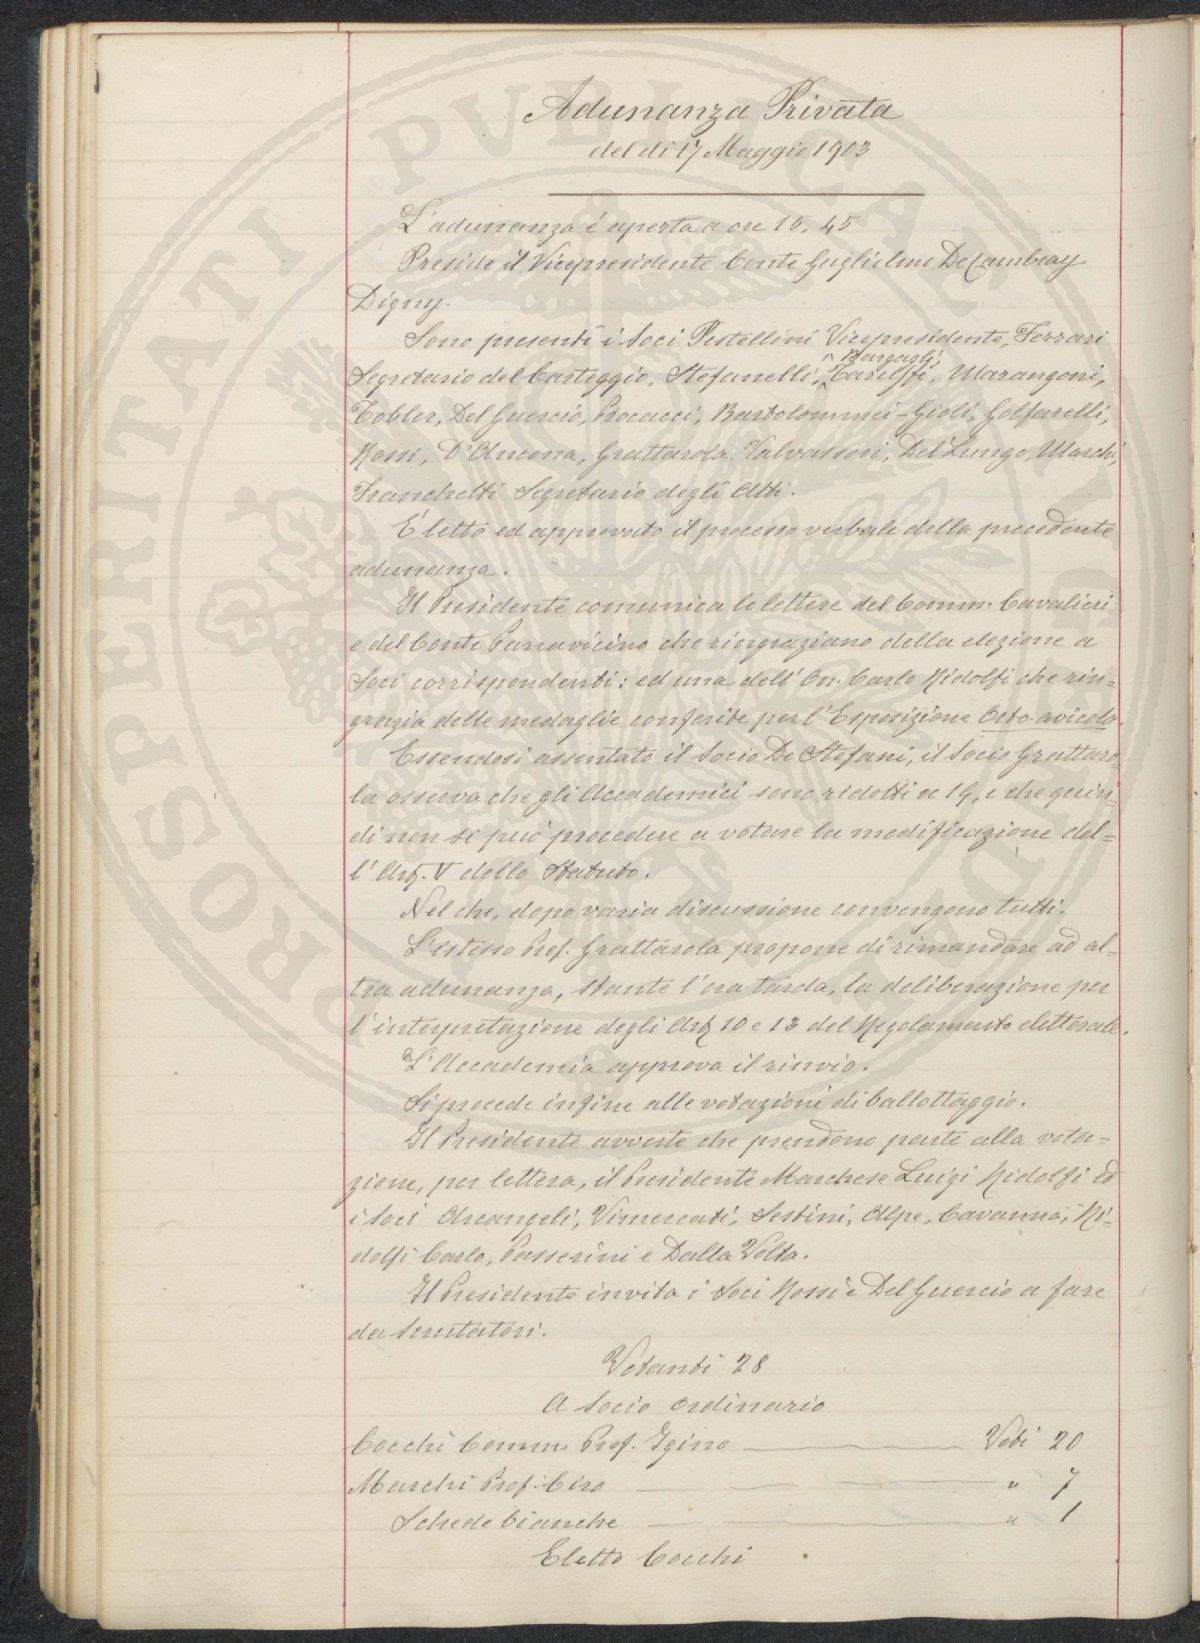 Adunanza Privata
del dì 17 Maggio 1903
L'adunanza é aperta a ore 15,45
Presiede il Vicepresidente Conte Guglielmo De Cambray
Digny.
Sono presenti i Soci Pestellini Vicepresidente, Ferrari
Bargagli,
Segretario del Carteggio, Stefanelli, Taruffi, Marangoni,
Tobler, Del Guercio, Procacci, Bartolommei-Gioli, Golfarelli,
Rossi, D'Ancona, Grattarola, Valvassori, Del Lungo, Marchi,
Franchetti Segretario degli Atti.
É letto ed approvato il processo verbale della precedente
adunanza.
Il Presidente comunica le lettere del Comm. Cavalieri
e del Conte Parravicino che ringraziano della elezione a
Soci corrispondenti: ed una dell'On. Carlo Ridolfi che rin=
grazia delle medaglie conferite per l'Esposizione Orto-avicola.
Essendosi assentato il Socio De Stefani, il Socio Grattaro-
la osserva che gli Accademici sono ridotti a 19, e che quin-
di non si può procedere a votare la modificazione del=
l'Art. V dello Statuto.
Nel che, dopo varia discussione convengono tutti.
L'istesso Prof. Grattarola propone di rimandare ad al-
tra adunanza, stante l'ora tarda, la deliberazione per
l'interpretazione degli Art. 10 e 13 del Regolamento elettorale.
L'Accademia approva il rinvio.
Si procede infine alle votazioni di ballottaggio.
Il Presidente avverte che prendono parte alla vota=
zione, per lettera, il Presidente Marchese Luigi Ridolfi ed
i Soci Arcangeli, Vimercati, Sestini, Alpe, Cavanna, Ri=
dolfi Carlo, Passerini e Dalla Volta.
Il Presidente invita i Soci Rossi e Del Guercio a fare
da scrutatori.
Votanti 28
A Socio ordinario
Cocchi Comm. Prof. Igino — Voti 20
Marchi Prof. Ciro — " 7
Schede bianche — " 1
Eletto Cocchi
PROSPERITATI PVBLICAE